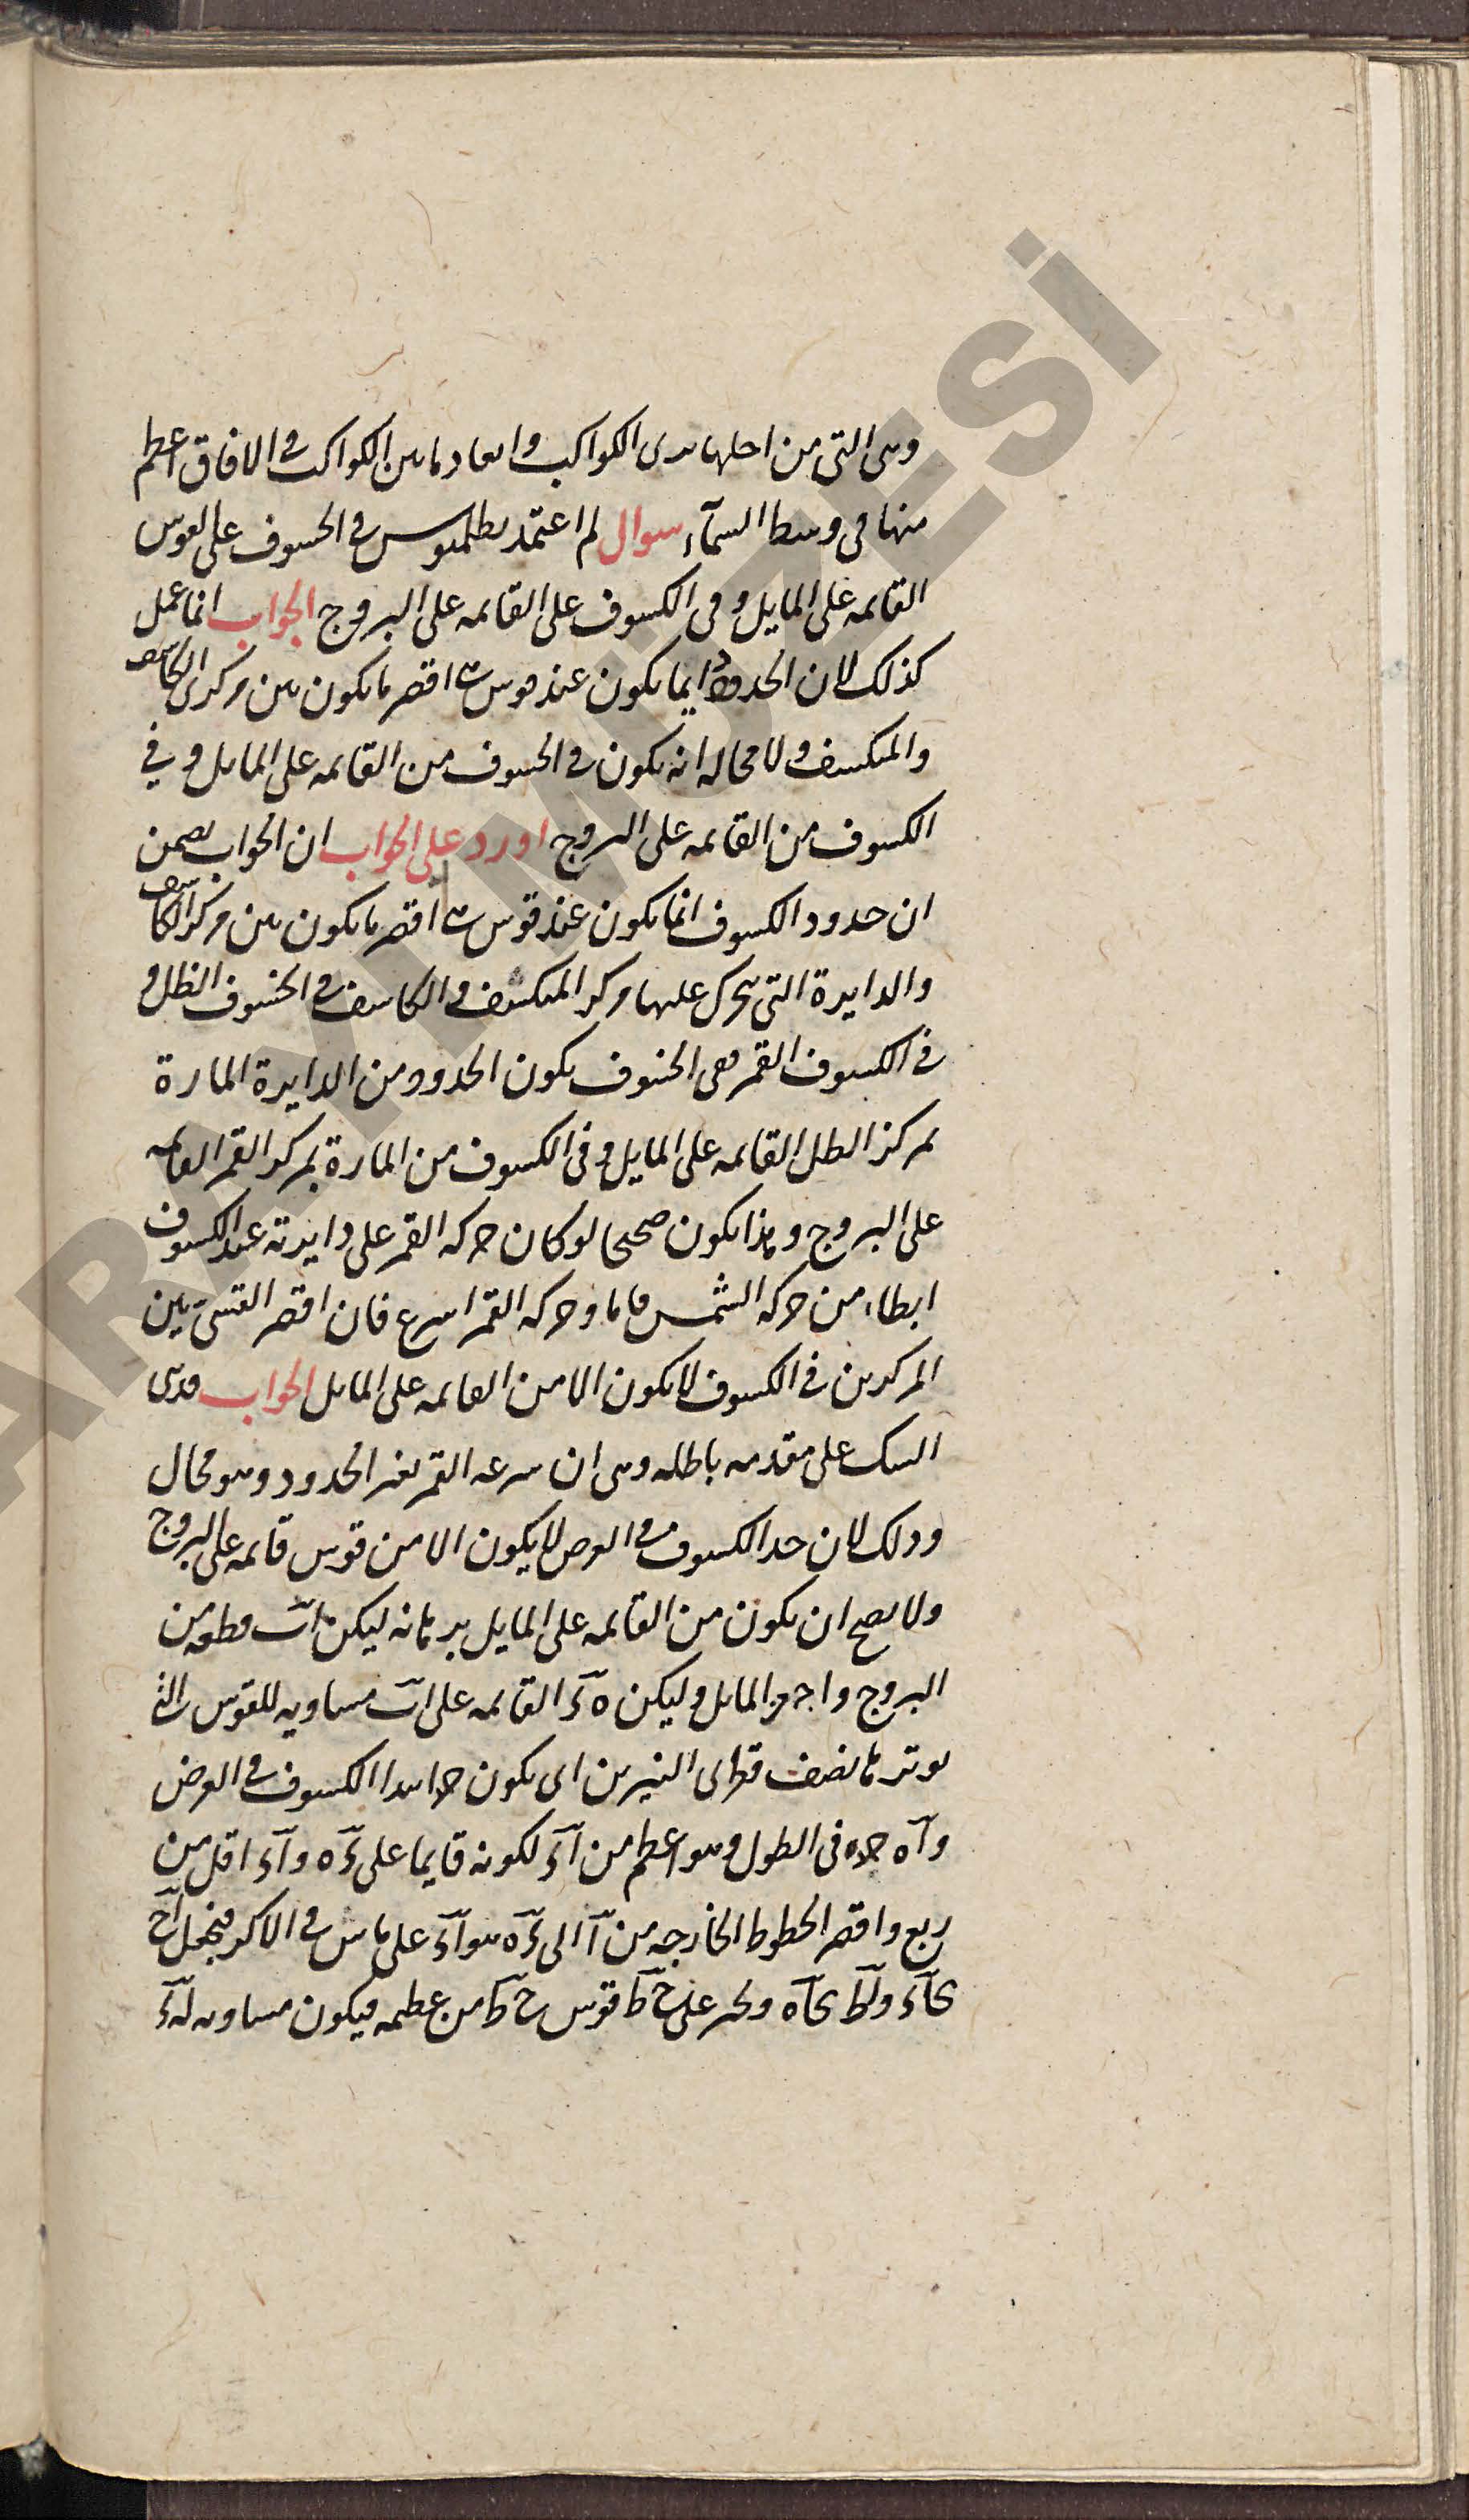 وهى التى من اجلها يرى الكواكب وابعاد ما بين الكواكب فى الافاق اعظم
منها فى وسط السمآء سوال لم اعتمد بطلميوس فى الخسوف على القوس
القايمه على المايل وفى الكسوف على القايمه على البروج الجواب انما عمل
كذلك لان الحدود انما يكون عند قوس هى اقصر ما يكون بين مركزى الكاسف
والمنكسف ولا محاله انه يكون فى الخسوف من القايمه على المايل وفى
الكسوف من القايمه على البروج اورد على الجواب ان الجواب تضمن
ان حدود الكسوف انما يكون عند قوس هى اقصر ما يكون بين مركز الكاسف
والدايرة التى يتحرك عليها مركز المنكسف والكاسف فى الخسوف الظل و
فى الكسوف القمر ففى الخسوف يكون الحدود من الدايرة المارة
بمركز الظل القايمه على المايل وفى الكسوف من المارة بمركز القمر القايمه
على البروج وهذا يكون صحيحا لو كان حركه القمر على دايرته عند الكسوف
ابطاء من حركه الشمس فاما وحركه القمر اسرع فان اقصر القسى بين
المركزين فى الكسوف لا يكون الا من القايمه على المايل الجواب قد بنى
الشك على مقدمه باطله وهى ان سرعه القمر تغير الحدود وهو محال
وذلك لان حد الكسوف فى العرض لا يكون الا من قوس قايمه على البروج
ولا يصح ان يكون من القايمه على المايل برهانه ليكن اب قطعه من
البروج واجـ من المايل وليكن هـ ء القايمه على اب مساويه للقوس التى
يوترها نصف قطرى النيرين اى يكون حد ابتدا الكسوف فى العرض
و آه حده فى الطول وهو اعظم من آء لكونه قايما على ءه و آء اقل من
ربع واقصر الخطوط الخارجه من آ الى ءه هو آء على ما فى الاكر فنجعل آح
كآء و آط كآه ونخرج على ح ط قوس ح ط من عظمه فيكون مساويه لـ هء